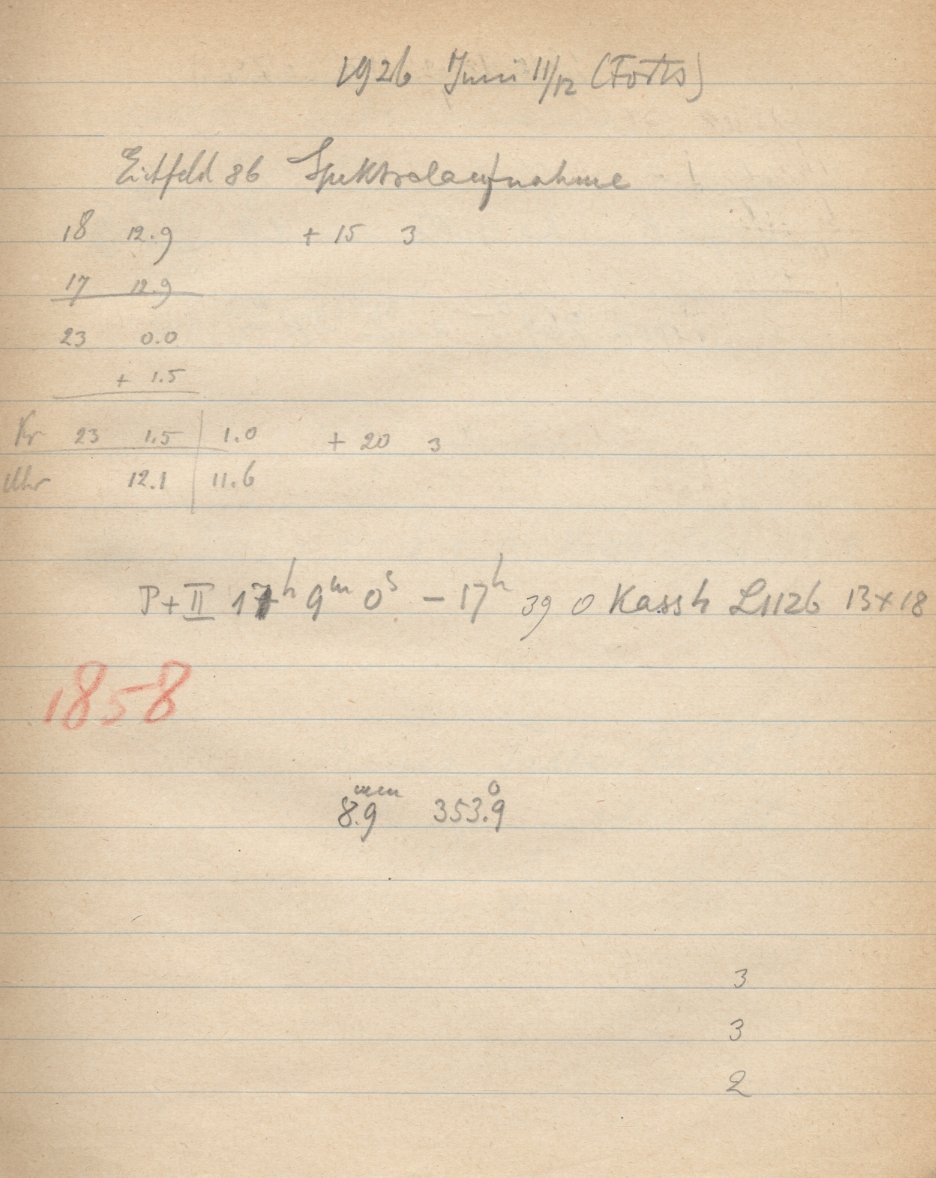 1926 Juni 11/12 (Forts)
Eichfeld 86 Spektralaufnahme
18 12.9 + 15 3
17 12.9
23 0.0
+ 1.5
Kr 23 1.5 | 1.0 + 20 3
Uhr 12.1 | 11.6
P+II 17h 9m 0s – 17h 39 0 Kass h L1126 13×18
1858
8.9mm 353.9°
3
3
2